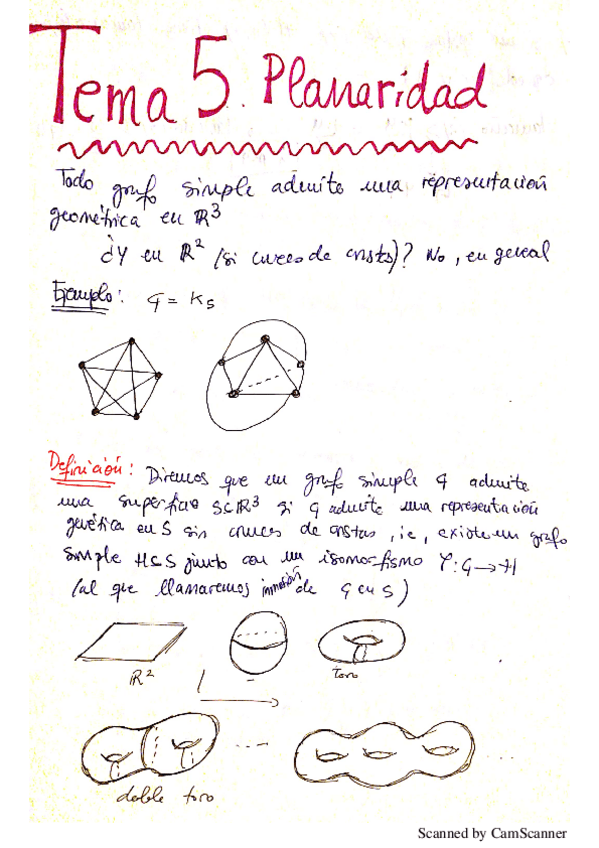 Tema 5. Planaridad
Todo grafo simple admite una representación
geométrica en ℝ³
¿Y en ℝ² (si cruces de aristas)? No, en general
Ejemplo: G = K₅
Definición: Diremos que un grafo simple G admite
una superficie S⊂ℝ³ si G admite una representación
en S sin cruces de aristas, ie, existe un grafo
simple H⊂S junto con un isomorfismo φ: G → H
(al que llamaremos inmersión de G en S)
ℝ²
toro
doble toro
Scanned by CamScanner